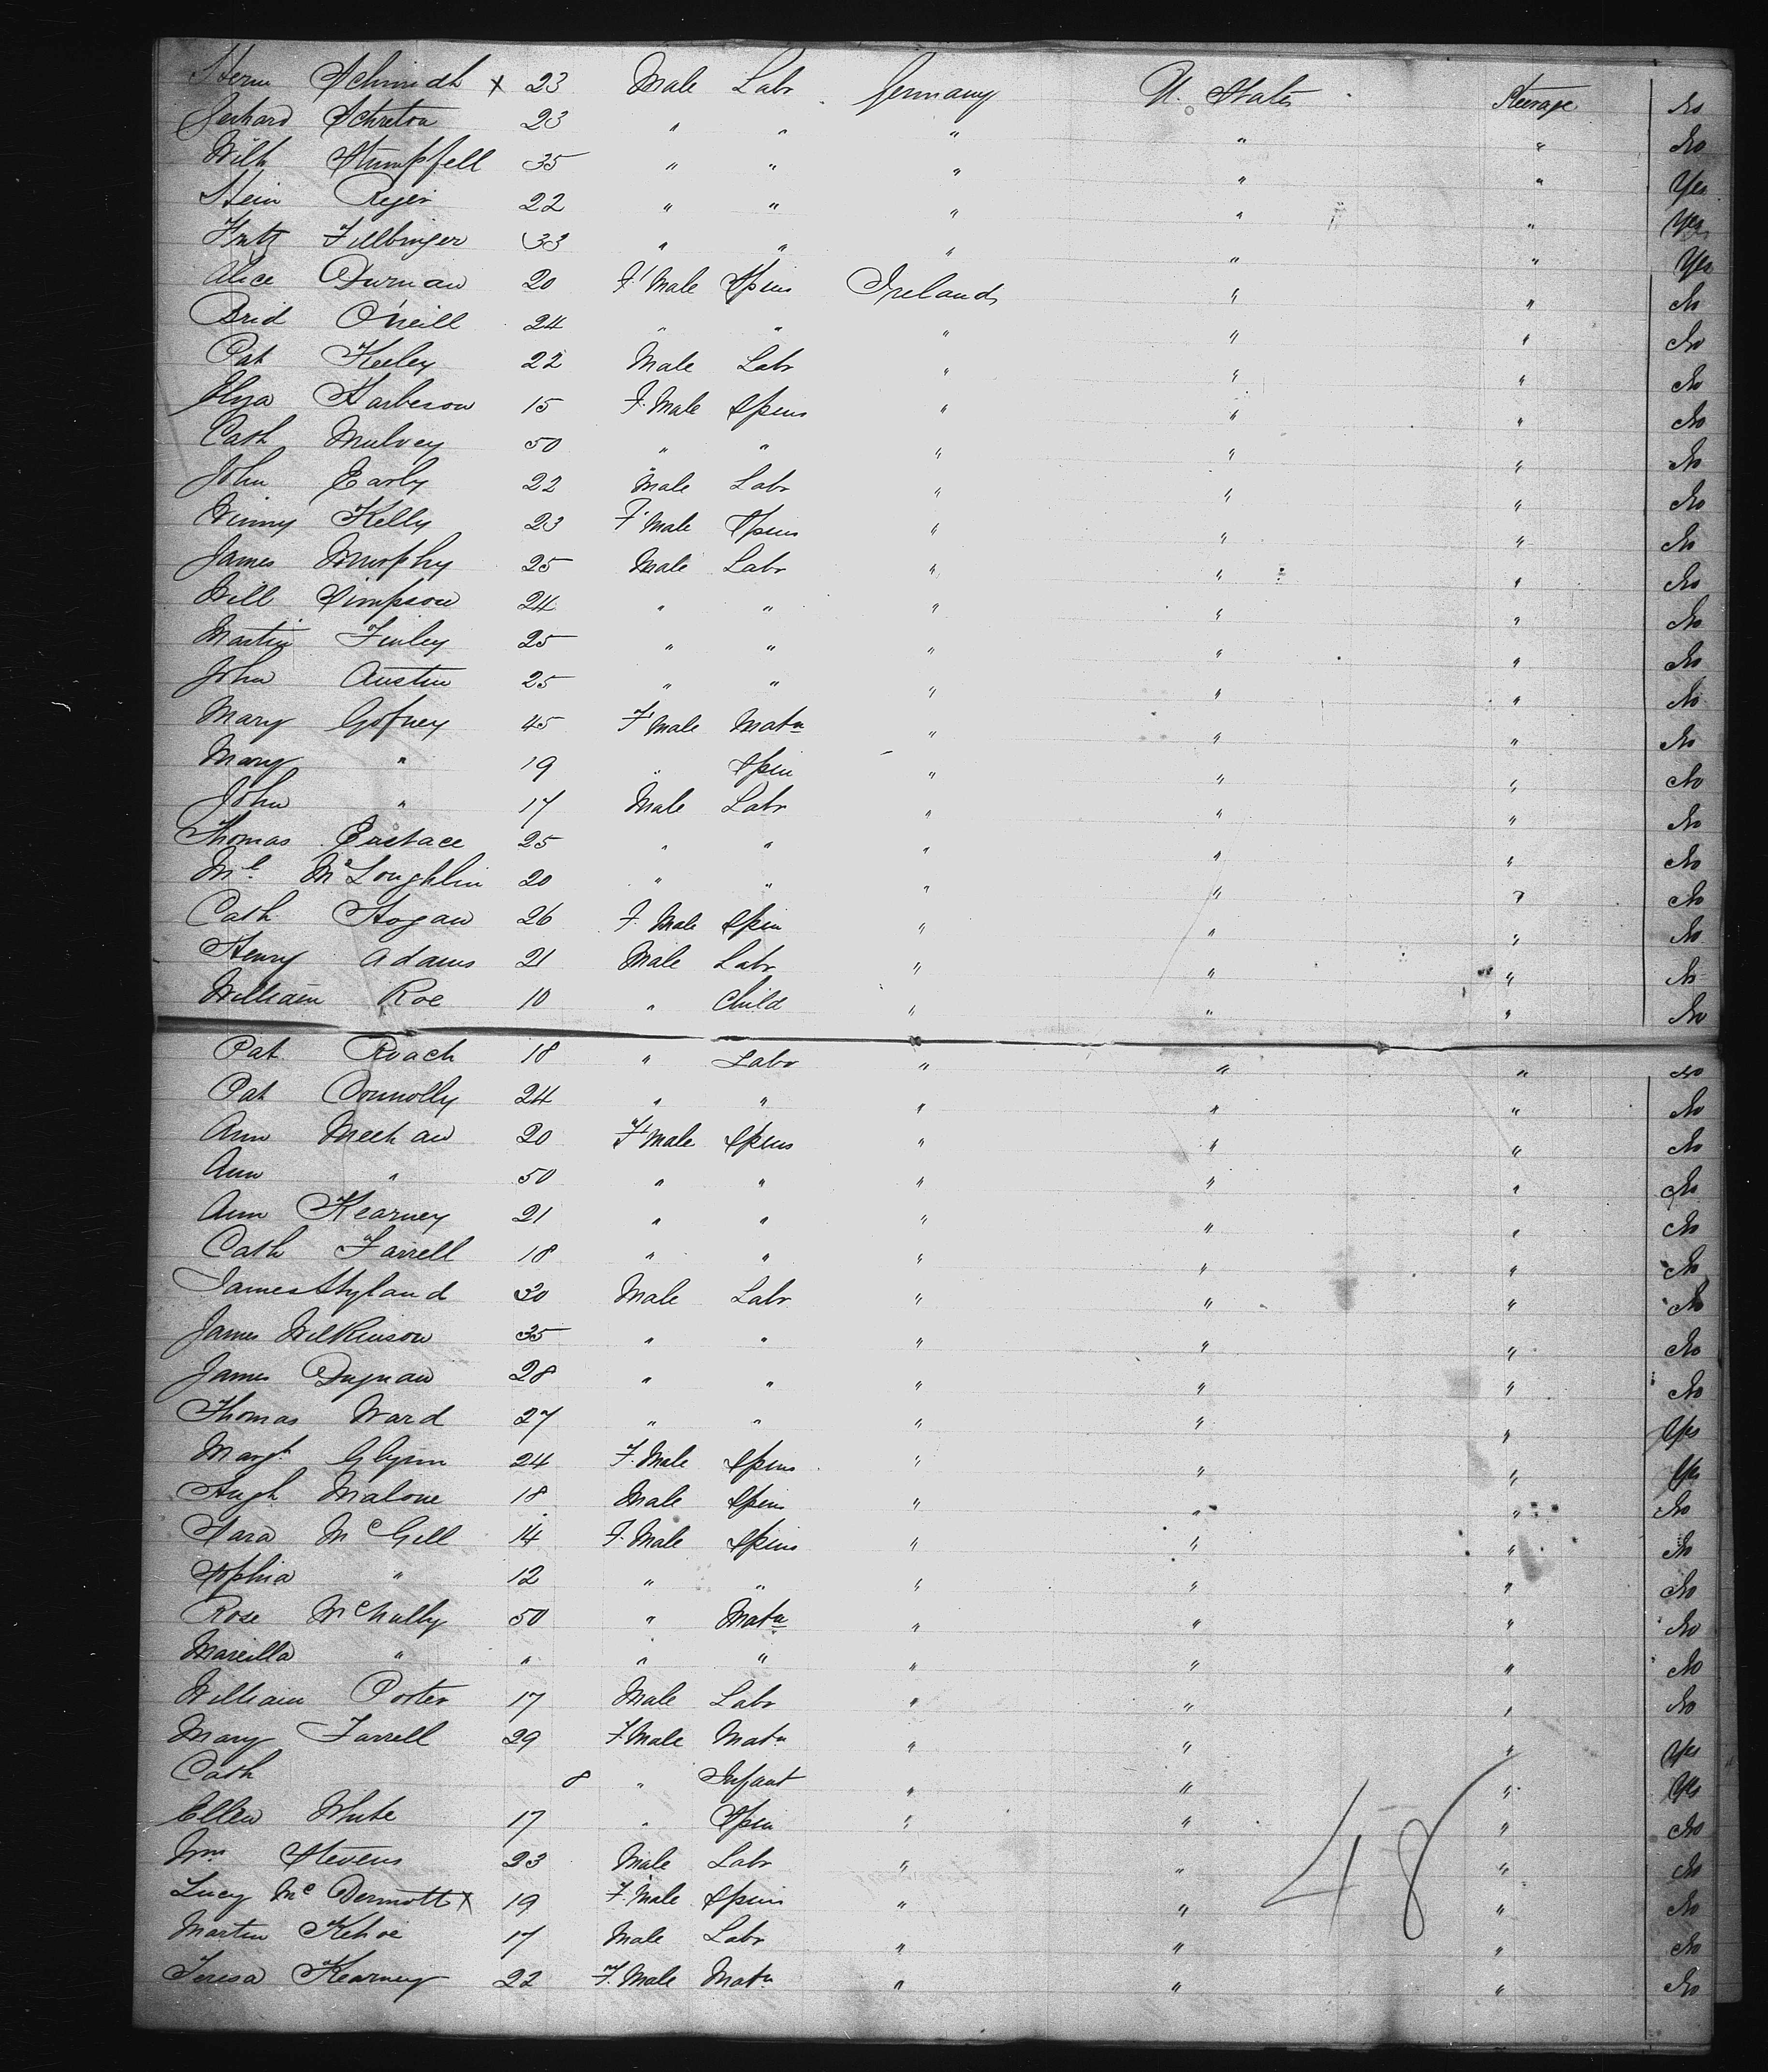 Herm Schmidt x 23 Male Labr Germany U. States Steerage No
Gerhard Schreton 23 " " " " " No
Wilh Stumpfell 35 " " " " " Yes
Stein Rejer 22 " " " " " Yes
Fritz Fillbinger 33 " " " " " Yes
Alice Durnan 20 F Male Spins Ireland " " No
Brid O'Neill 24 " " " " " No
Pat Keeley 22 Male Labr " " " No
Eliza Harberson 15 F. Male Spins " " " No
Cath Mulvey 50 " " " " " No
John Early 22 Male Labr " " " No
Winny Kelly 23 F Male Spins " " " No
James Murphy 25 Male Labr " " " No
Will Simpson 24 " " " " " No
Martin Finley 25 " " " " " No
John Austin 25 " " " " " No
Mary Gofney 45 F Male Matn " " " No
Mary " 19 " Spin " " " No
John " 17 Male Labr " " " No
Thomas Eustace 25 " " " " " No
Ml. McLoughlin 20 " " " " " No
Cath Hogan 26 F. Male Spin " " " No
Henry Adams 21 Male Labr " " " No
William Roe 10 " Child " " " No
Pat Roach 18 " Labr " " " No
Pat Connolly 24 " " " " " No
Ann Meehan 20 F Male Spins " " " No
Ann " 50 " " " " " No
Ann Kearney 21 " " " " " No
Cath Farrell 18 " " " " " No
James Hyland 30 Male Labr " " " No
James Wilkinson 35 " " " " " No
James Dugnan 28 " " " " " No
Thomas Ward 27 " " " " " Yes
Margt Glynn 24 F. Male Spins " " " Yes
Hugh Malone 18 Male Spin " " " No
Sara McGill 14 F. Male Spins " " " No
Sophia " 12 " " " " " No
Rose McNally 50 " Matn " " " No
Marcilla " " " " " " " No
William Porter 17 Male Labr " " " No
Mary Farrell 29 F. Male Matn " " " Yes
Cath 8 " Infant " " " Yes
Ellen White 17 " Spin " " " No
Wm Stevens 23 Male Labr " " " No
Lucy McDermott x 19 F. Male Spins " " " No
Martin Kehoe 17 Male Labr " " " No
Teresa Kearney 22 F. Male Matn " " " No
48